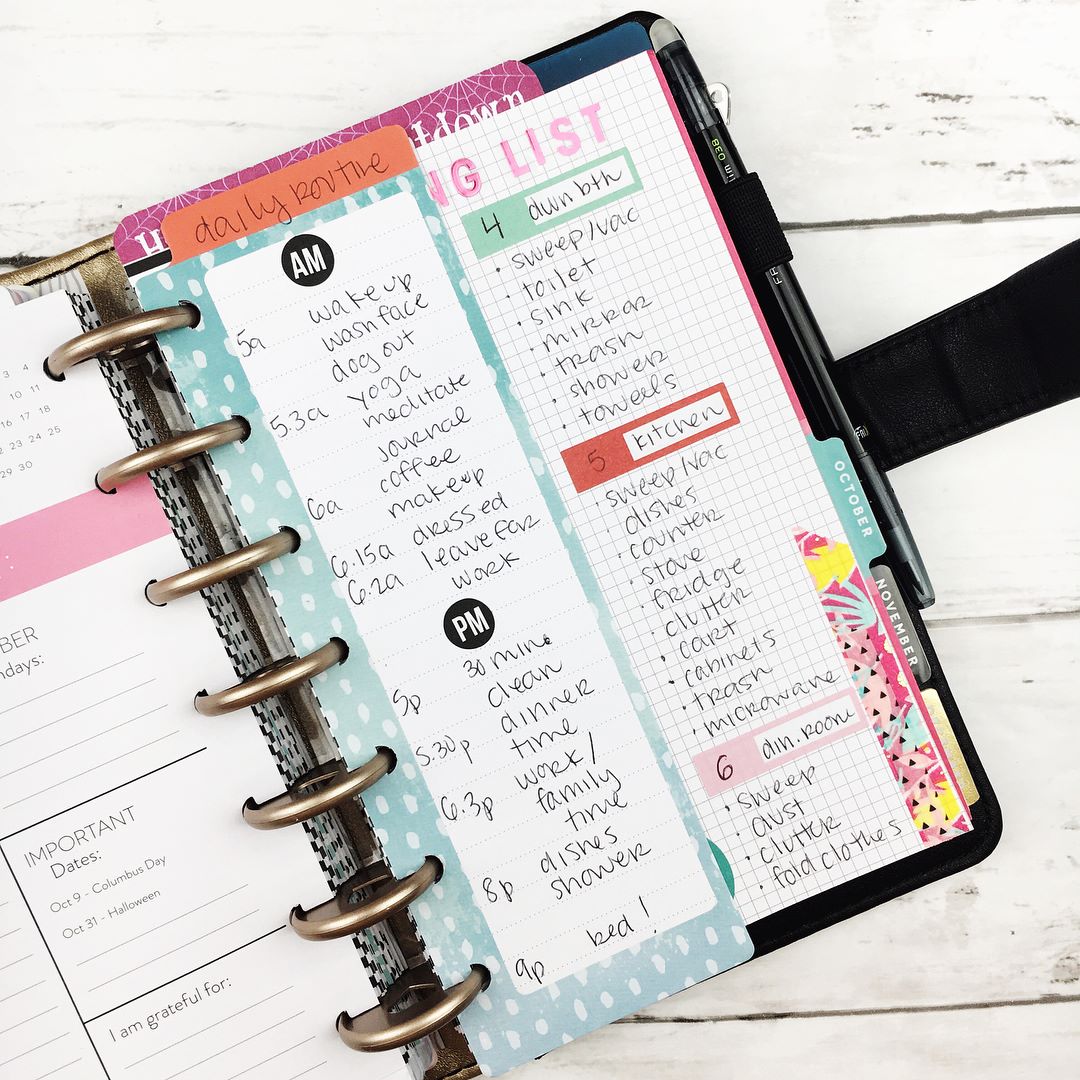 3 4
10 11
16 17 18
23 24 25
29 30
BER
ndays:
IMPORTANT
Dates:
Oct 9 - Columbus Day
Oct 31 - Halloween
I am grateful for:
tdown
daily routine
AM
5a wake up
wash face
dog out
5.3a yoga
meditate
journal
6a coffee
makeup
6.15a dressed
6.2a leave for
work
PM
5p 30 min.
clean
5.30p dinner
time
6.3p work/
family
time
8p dishes
shower
9p bed!
NG LIST
4 dwn bth
· sweep/vac
· toilet
· sink
· mirror
· trash
· shower
· towels
5 kitchen
· sweep/vac
· dishes
· counter
· stove
· fridge
· clutter
· cart
· cabinets
· trash
· microwave
6 din. room
· sweep
· dust
· clutter
· fold clothes
OCTOBER
NOVEMBER